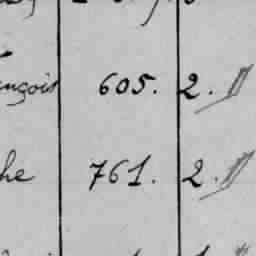 nçois 605. 2. //
he 761. 2. //